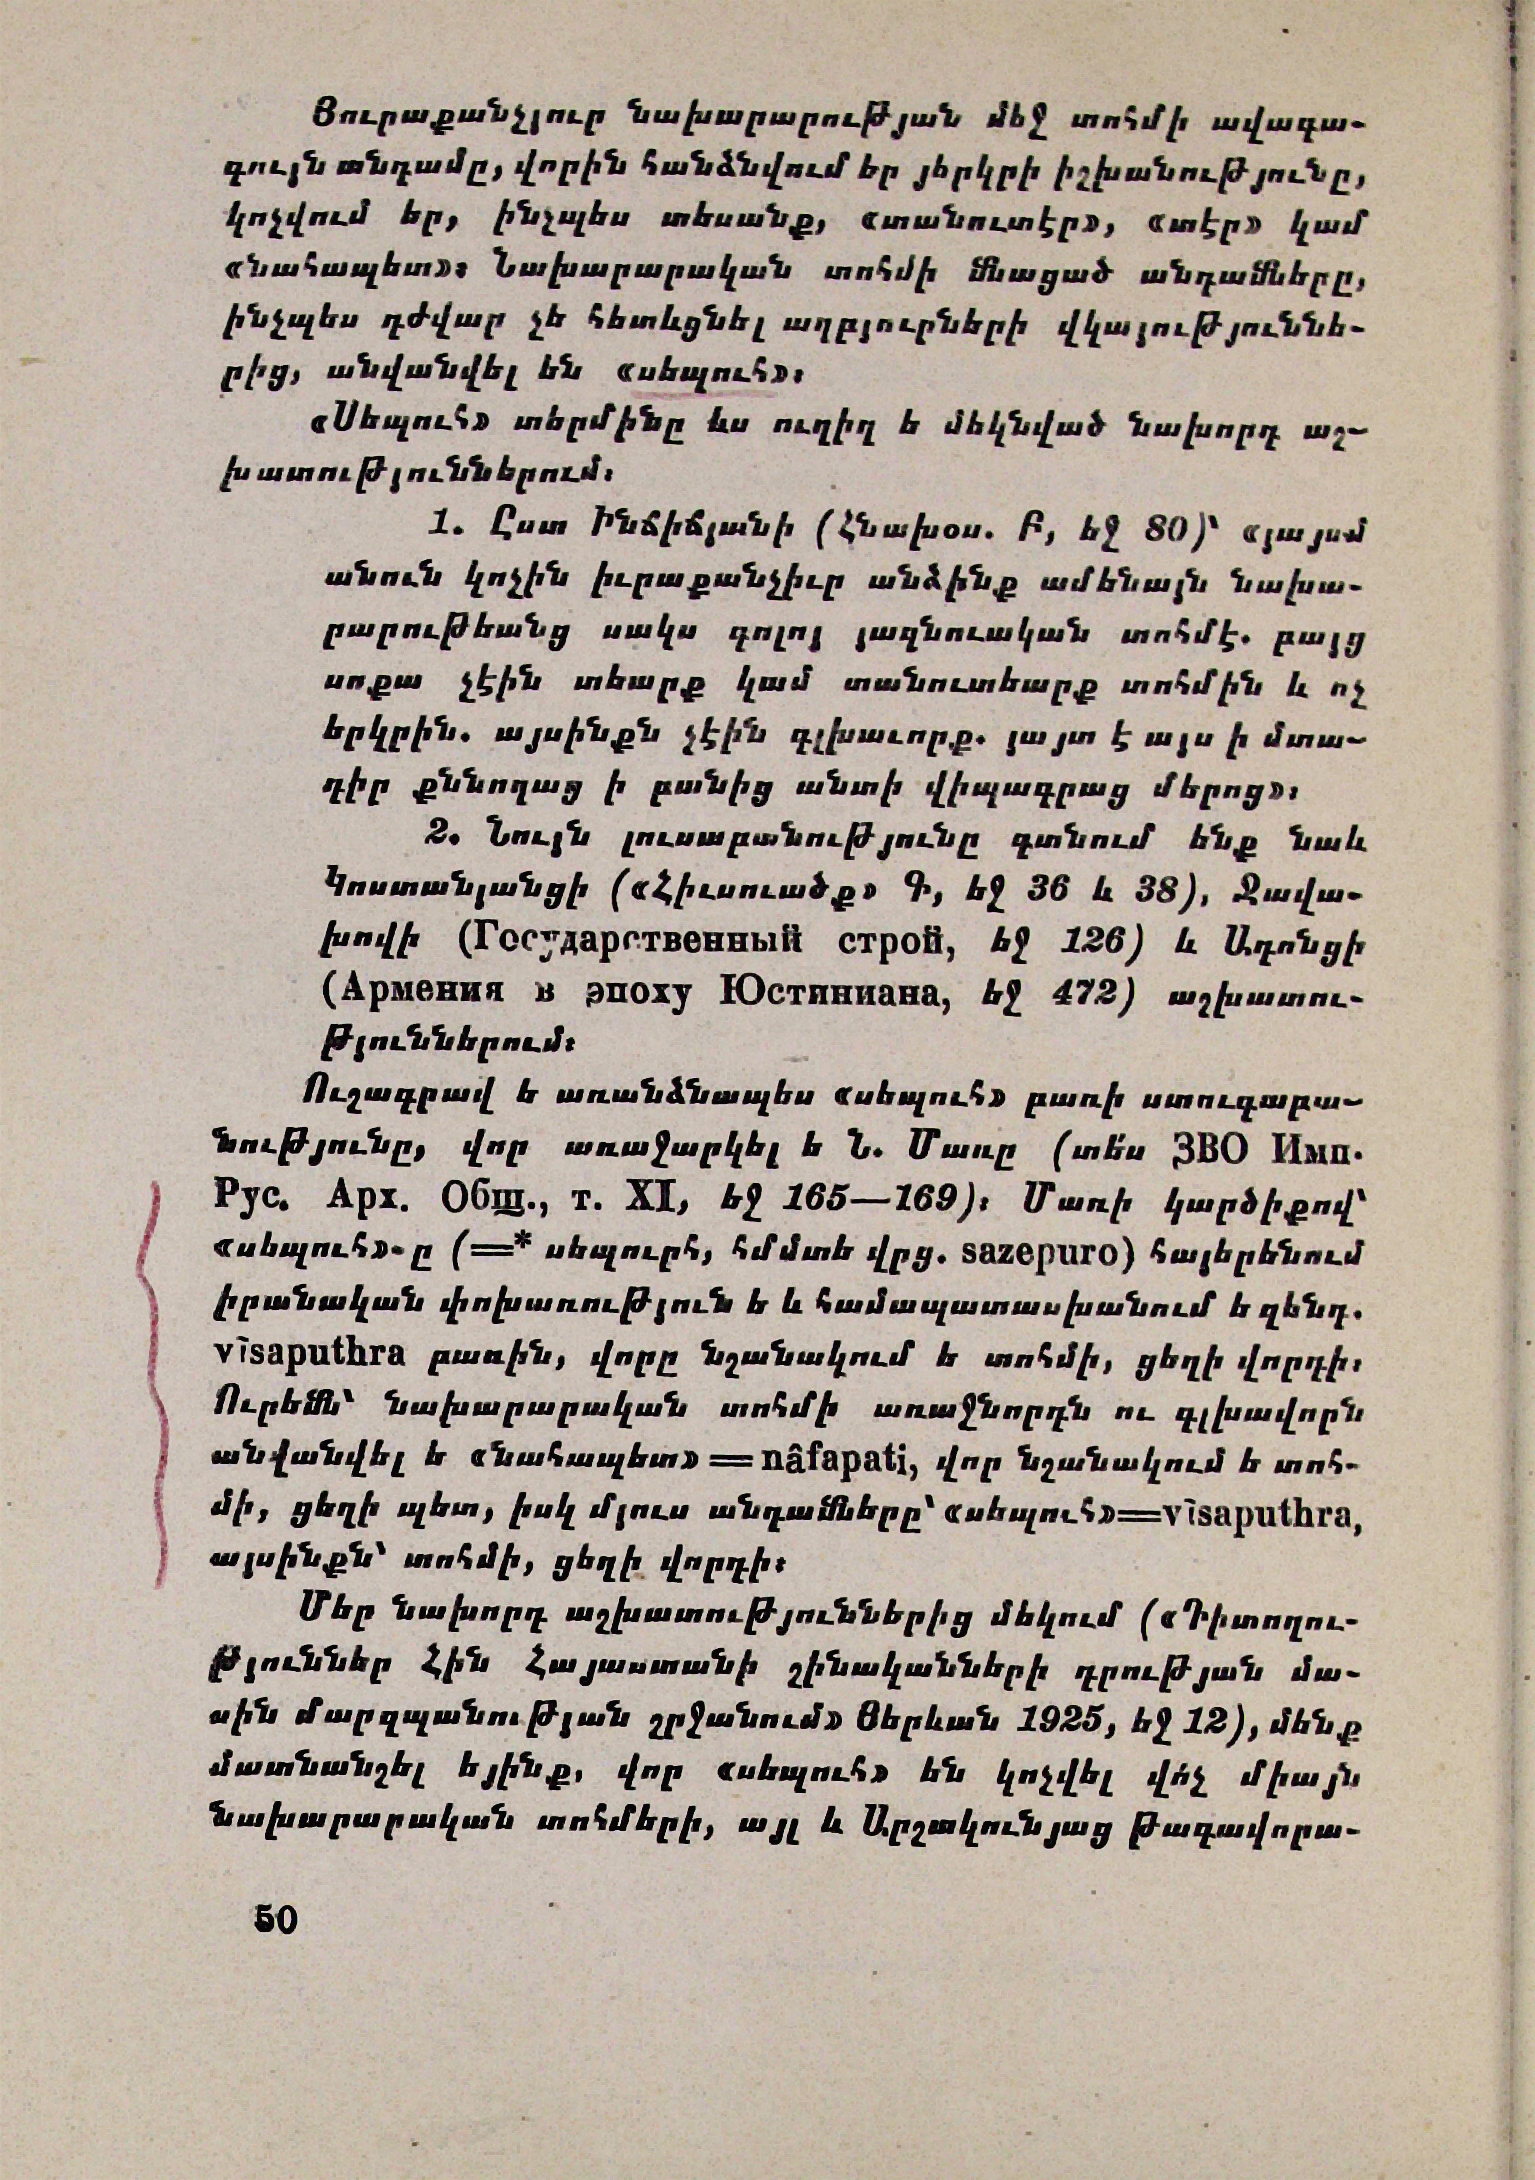 Յուրաքանչյուր նախարարության մեջ տոհմի ավագա-
գույն անդամը, վորին հանձնվում եր յերկրի իշխանությունը,
կոչվում եր, ինչպես տեսանք, «տանուտէր», «տէր» կամ
«նահապետ»։ Նախարարական տոհմի մնացած անդամները,
ինչպես դժվար չե հետևցնել աղբյուրների վկայություննե-
րից, անվանվել են «սեպուհ»։
«Սեպուհ» տերմինը ևս ուղիղ ե մեկնված նախորդ աշ-
խատություններում։
1. Ըստ Ինճիճյանի (Հնախօս. Բ, եջ 80)՝ «յայսմ
անուն կոչին իւրաքանչիւր անձինք ամենայն նախա-
րարութեանց սակս գոլոյ յազնուական տոհմէ. բայց
սոքա չէին տեարք կամ տանուտեարք տոհմին և ոչ
երկրին. այսինքն չէին գլխաւորք. յայտ է այս ի մտա-
դիր քննողաց ի բանից անտի վիպագրաց մերոց»։
2. Նույն լուսաբանությունը գտնում ենք նաև
Կոստանյանցի («Հիւսուածք» Գ, եջ 36 և 38), Ջավա-
խովի (Государственный строй, եջ 126) և Ադոնցի
(Армения в эпоху Юстиниана, եջ 472) աշխատու-
թյուններում։
Ուշագրավ ե առանձնապես «սեպուհ» բառի ստուգաբա-
նությունը, վոր առաջարկել ե Ն. Մառը (տե՛ս ЗВО Имп.
Рус. Арх. Общ., т. XI, եջ 165—169)։ Մառի կարծիքով՝
«սեպուհ»-ը (=* սեպուրհ, հմմտե վրց. sazepuro) հայերենում
իրանական փոխառություն ե և համապատասխանում ե զենդ.
vīsaputhra բառին, վորը նշանակում ե տոհմի, ցեղի վորդի։
Ուրեմն՝ նախարարական տոհմի առաջնորդն ու գլխավորն
անվանվել ե «նահապետ» = nâfapati, վոր նշանակում ե տոհ-
մի, ցեղի պետ, իսկ մյուս անդամները՝ «սեպուհ»=vīsaputhra,
այսինքն՝ տոհմի, ցեղի վորդի։
Մեր նախորդ աշխատություններից մեկում («Դիտողու-
թյուններ Հին Հայաստանի շինականների դրության մա-
սին մարզպանության շրջանում» Յերևան 1925, եջ 12), մենք
մատնանշել եյինք, վոր «սեպուհ» են կոչվել վո՛չ միայն
նախարարական տոհմերի, այլ և Արշակունյաց թագավորա-
50